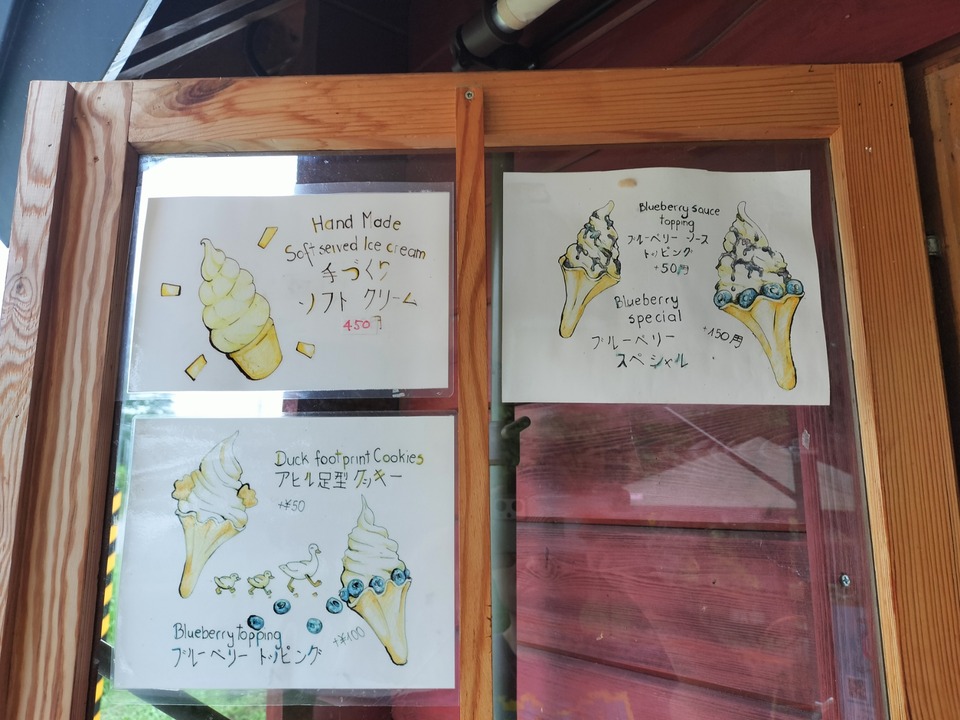 Hand Made
Soft served Ice cream
手づくり
ソフト クリーム
450円
Blueberry sauce
topping
ブルーベリー ソース
トッピング
+50円
Blueberry
special
+150円
ブルーベリー
スペシャル
Duck footprint Cookies
アヒル足型クッキー
+¥50
Blueberry topping
ブルーベリー トッピング
+¥100